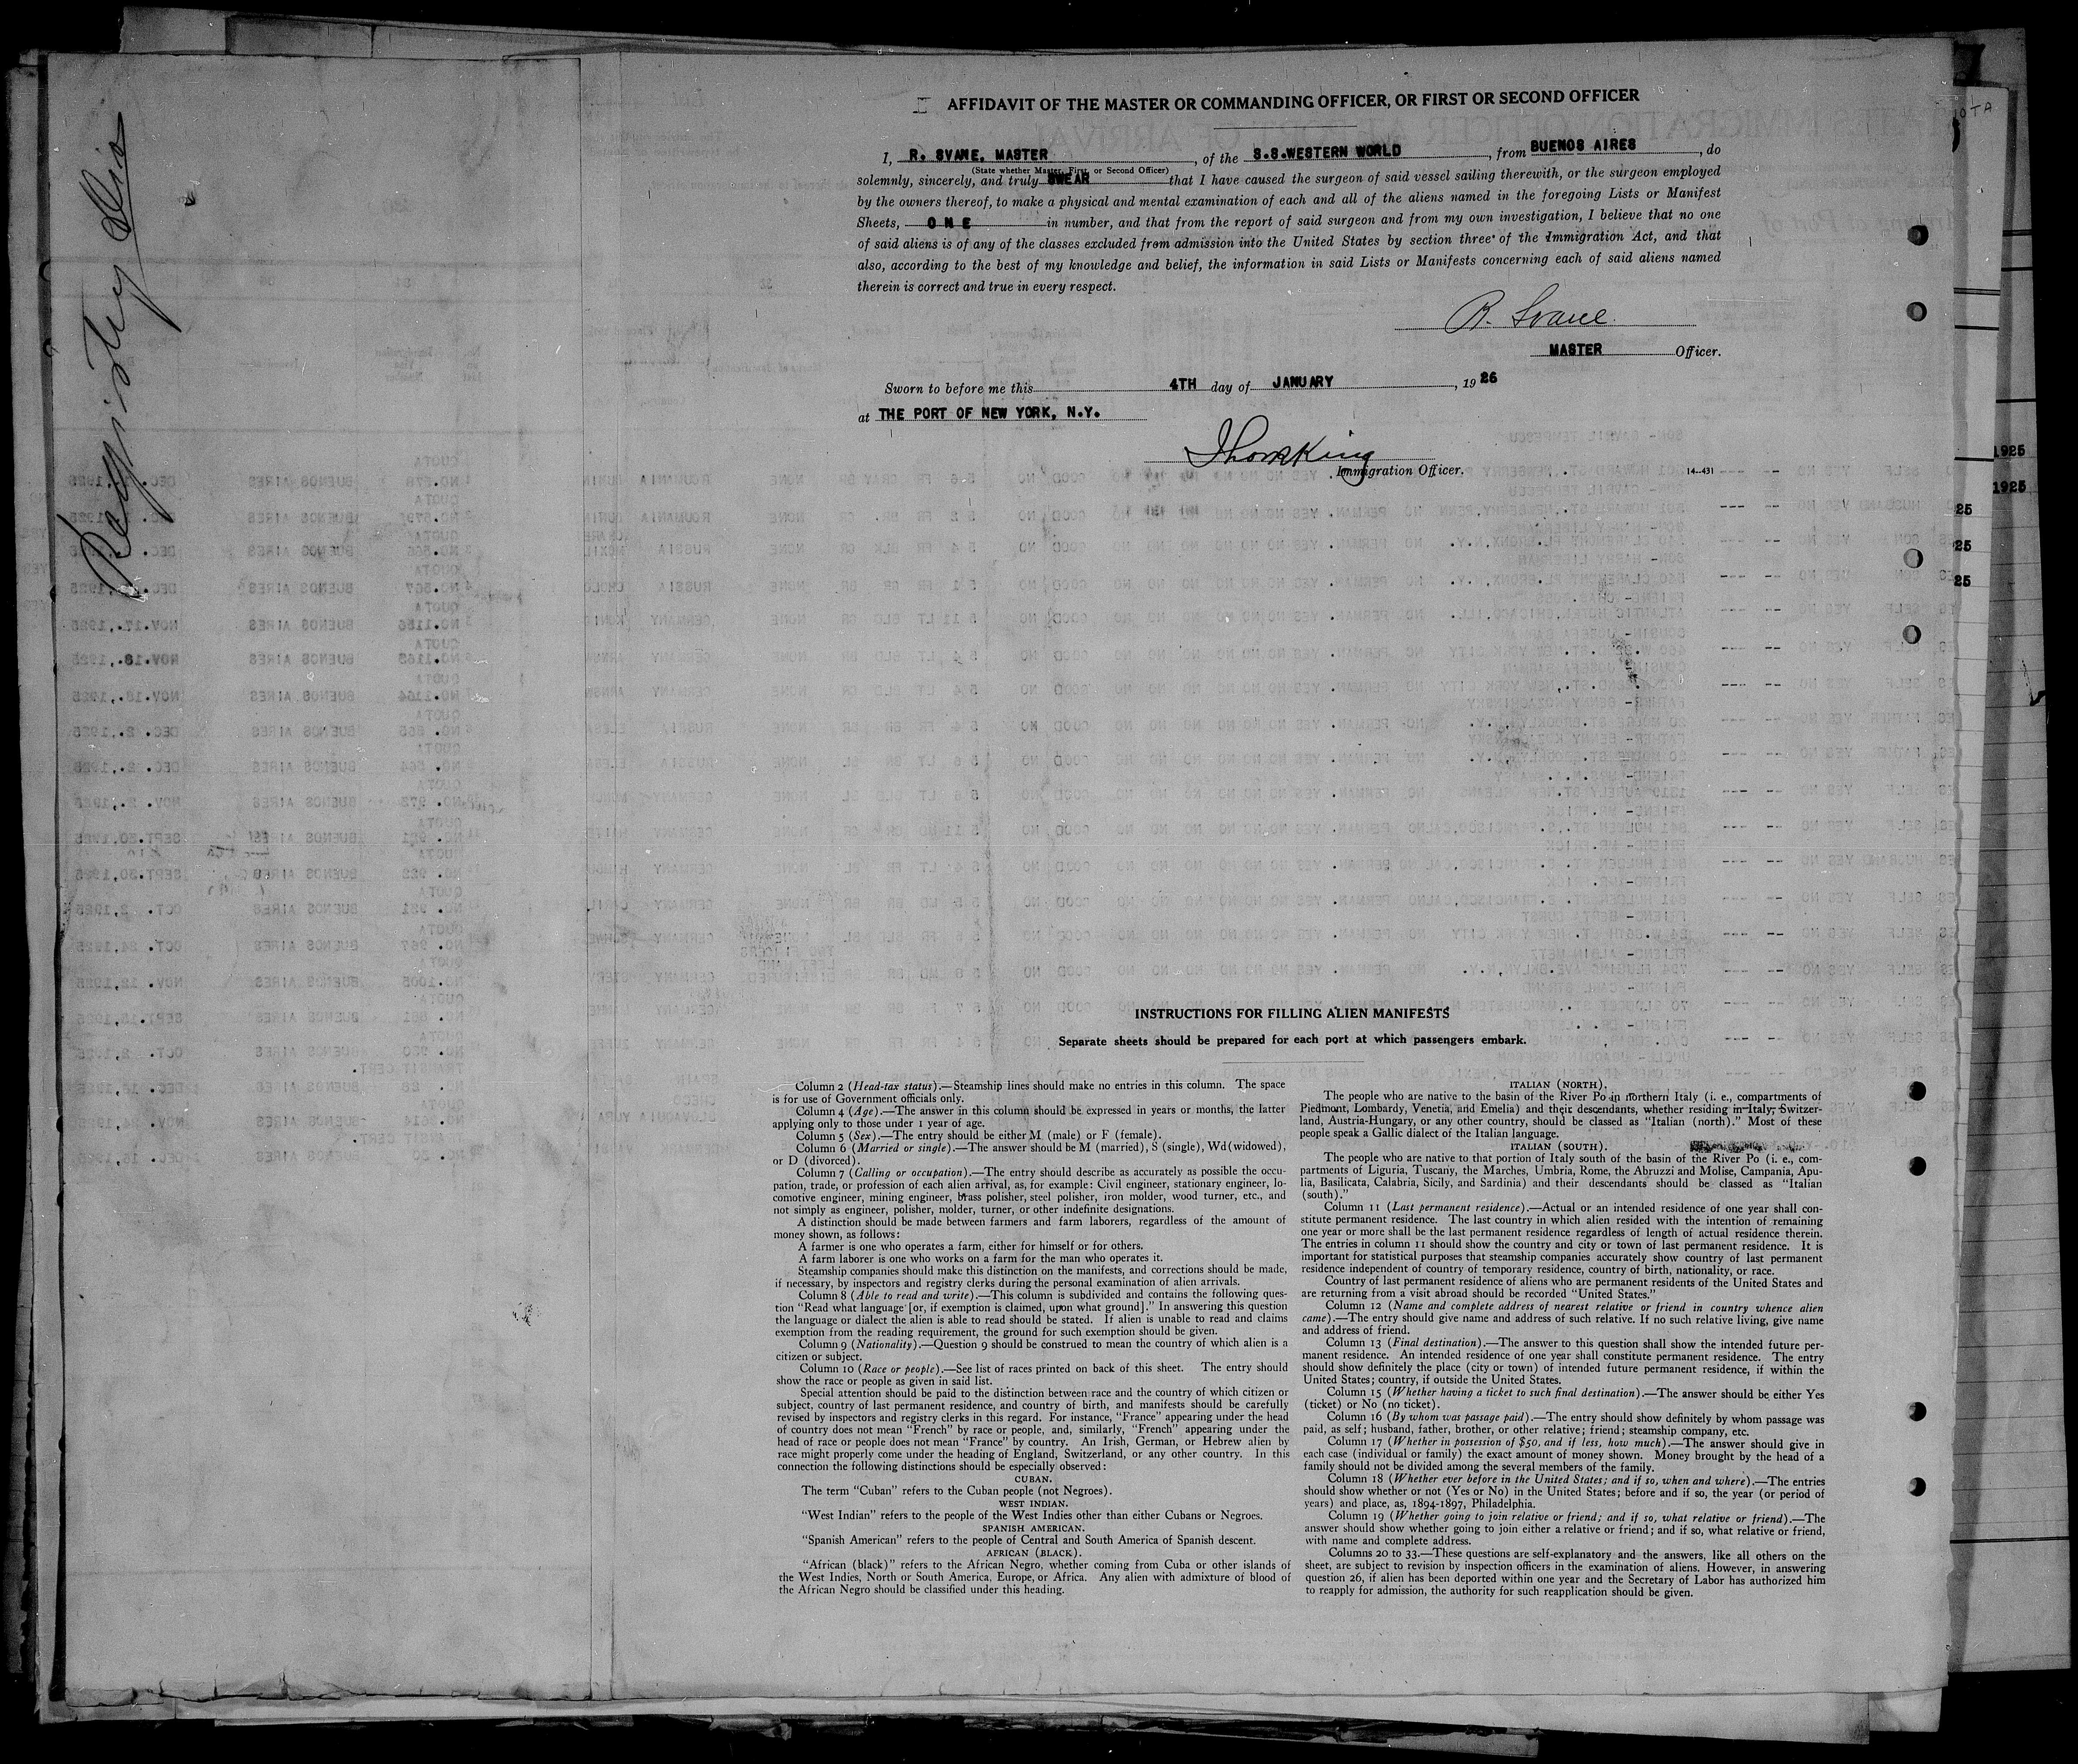 AFFIDAVIT OF THE MASTER OR COMMANDING OFFICER, OR FIRST OR SECOND OFFICER
I, R. SVANE, MASTER, of the S.S.WESTERN WORLD, from BUENOS AIRES, do
(State whether Master, First, or Second Officer)
solemnly, sincerely, and truly SWEAR that I have caused the surgeon of said vessel sailing therewith, or the surgeon employed
by the owners thereof, to make a physical and mental examination of each and all of the aliens named in the foregoing Lists or Manifest
Sheets, ONE in number, and that from the report of said surgeon and from my own investigation, I believe that no one
of said aliens is of any of the classes excluded from admission into the United States by section three of the Immigration Act, and that
also, according to the best of my knowledge and belief, the information in said Lists or Manifests concerning each of said aliens named
therein is correct and true in every respect.
R. Svane
MASTER Officer.
Sworn to before me this 4TH day of JANUARY, 1926
at THE PORT OF NEW YORK, N.Y.
Immigration Officer.
14-431
Registry Div
1925
1925
25
25
25
INSTRUCTIONS FOR FILLING ALIEN MANIFESTS
Separate sheets should be prepared for each port at which passengers embark.
Column 2 (Head-tax status).—Steamship lines should make no entries in this column. The space
is for use of Government officials only.
Column 4 (Age).—The answer in this column should be expressed in years or months, the latter
applying only to those under 1 year of age.
Column 5 (Sex).—The entry should be either M (male) or F (female).
Column 6 (Married or single).—The answer should be M (married), S (single), Wd (widowed),
or D (divorced).
Column 7 (Calling or occupation).—The entry should describe as accurately as possible the occu-
pation, trade, or profession of each alien arrival, as, for example: Civil engineer, stationary engineer, lo-
comotive engineer, mining engineer, brass polisher, steel polisher, iron molder, wood turner, etc., and
not simply as engineer, polisher, molder, turner, or other indefinite designations.
A distinction should be made between farmers and farm laborers, regardless of the amount of
money shown, as follows:
A farmer is one who operates a farm, either for himself or for others.
A farm laborer is one who works on a farm for the man who operates it.
Steamship companies should make this distinction on the manifests, and corrections should be made,
if necessary, by inspectors and registry clerks during the personal examination of alien arrivals.
Column 8 (Able to read and write).—This column is subdivided and contains the following ques-
tion "Read what language [or, if exemption is claimed, upon what ground]." In answering this question
the language or dialect the alien is able to read should be stated. If alien is unable to read and claims
exemption from the reading requirement, the ground for such exemption should be given.
Column 9 (Nationality).—Question 9 should be construed to mean the country of which alien is a
citizen or subject.
Column 10 (Race or people).—See list of races printed on back of this sheet. The entry should
show the race or people as given in said list.
Special attention should be paid to the distinction between race and the country of which citizen or
subject, country of last permanent residence, and country of birth, and manifests should be carefully
revised by inspectors and registry clerks in this regard. For instance, "France" appearing under the head
of country does not mean "French" by race or people, and, similarly, "French" appearing under the
head of race or people does not mean "France" by country. An Irish, German, or Hebrew alien by
race might properly come under the heading of England, Switzerland, or any other country. In this
connection the following distinctions should be especially observed:
CUBAN.
The term "Cuban" refers to the Cuban people (not Negroes).
WEST INDIAN.
"West Indian" refers to the people of the West Indies other than either Cubans or Negroes.
SPANISH AMERICAN.
"Spanish American" refers to the people of Central and South America of Spanish descent.
AFRICAN (BLACK).
"African (black)" refers to the African Negro, whether coming from Cuba or other islands of
the West Indies, North or South America, Europe, or Africa. Any alien with admixture of blood of
the African Negro should be classified under this heading.
ITALIAN (NORTH).
The people who are native to the basin of the River Po in northern Italy (i. e., compartments of
Piedmont, Lombardy, Venetia, and Emelia) and their descendants, whether residing in Italy, Switzer-
land, Austria-Hungary, or any other country, should be classed as "Italian (north)." Most of these
people speak a Gallic dialect of the Italian language.
ITALIAN (SOUTH).
The people who are native to that portion of Italy south of the basin of the River Po (i. e., com-
partments of Liguria, Tuscany, the Marches, Umbria, Rome, the Abruzzi and Molise, Campania, Apu-
lia, Basilicata, Calabria, Sicily, and Sardinia) and their descendants should be classed as "Italian
(south)."
Column 11 (Last permanent residence).—Actual or an intended residence of one year shall con-
stitute permanent residence. The last country in which alien resided with the intention of remaining
one year or more shall be the last permanent residence regardless of length of actual residence therein.
The entries in column 11 should show the country and city or town of last permanent residence. It is
important for statistical purposes that steamship companies accurately show country of last permanent
residence independent of country of temporary residence, country of birth, nationality, or race.
Country of last permanent residence of aliens who are permanent residents of the United States and
are returning from a visit abroad should be recorded "United States."
Column 12 (Name and complete address of nearest relative or friend in country whence alien
came).—The entry should give name and address of such relative. If no such relative living, give name
and address of friend.
Column 13 (Final destination).—The answer to this question shall show the intended future per-
manent residence. An intended residence of one year shall constitute permanent residence. The entry
should show definitely the place (city or town) of intended future permanent residence, if within the
United States; country, if outside the United States.
Column 15 (Whether having a ticket to such final destination).—The answer should be either Yes
(ticket) or No (no ticket).
Column 16 (By whom was passage paid).—The entry should show definitely by whom passage was
paid, as self; husband, father, brother, or other relative; friend; steamship company, etc.
Column 17 (Whether in possession of $50, and if less, how much).—The answer should give in
each case (individual or family) the exact amount of money shown. Money brought by the head of a
family should not be divided among the several members of the family.
Column 18 (Whether ever before in the United States; and if so, when and where).—The entries
should show whether or not (Yes or No) in the United States; before and if so, the year (or period of
years) and place, as, 1894-1897, Philadelphia.
Column 19 (Whether going to join relative or friend; and if so, what relative or friend).—The
answer should show whether going to join either a relative or friend; and if so, what relative or friend,
with name and complete address.
Columns 20 to 33.—These questions are self-explanatory and the answers, like all others on the
sheet, are subject to revision by inspection officers in the examination of aliens. However, in answering
question 26, if alien has been deported within one year and the Secretary of Labor has authorized him
to reapply for admission, the authority for such reapplication should be given.